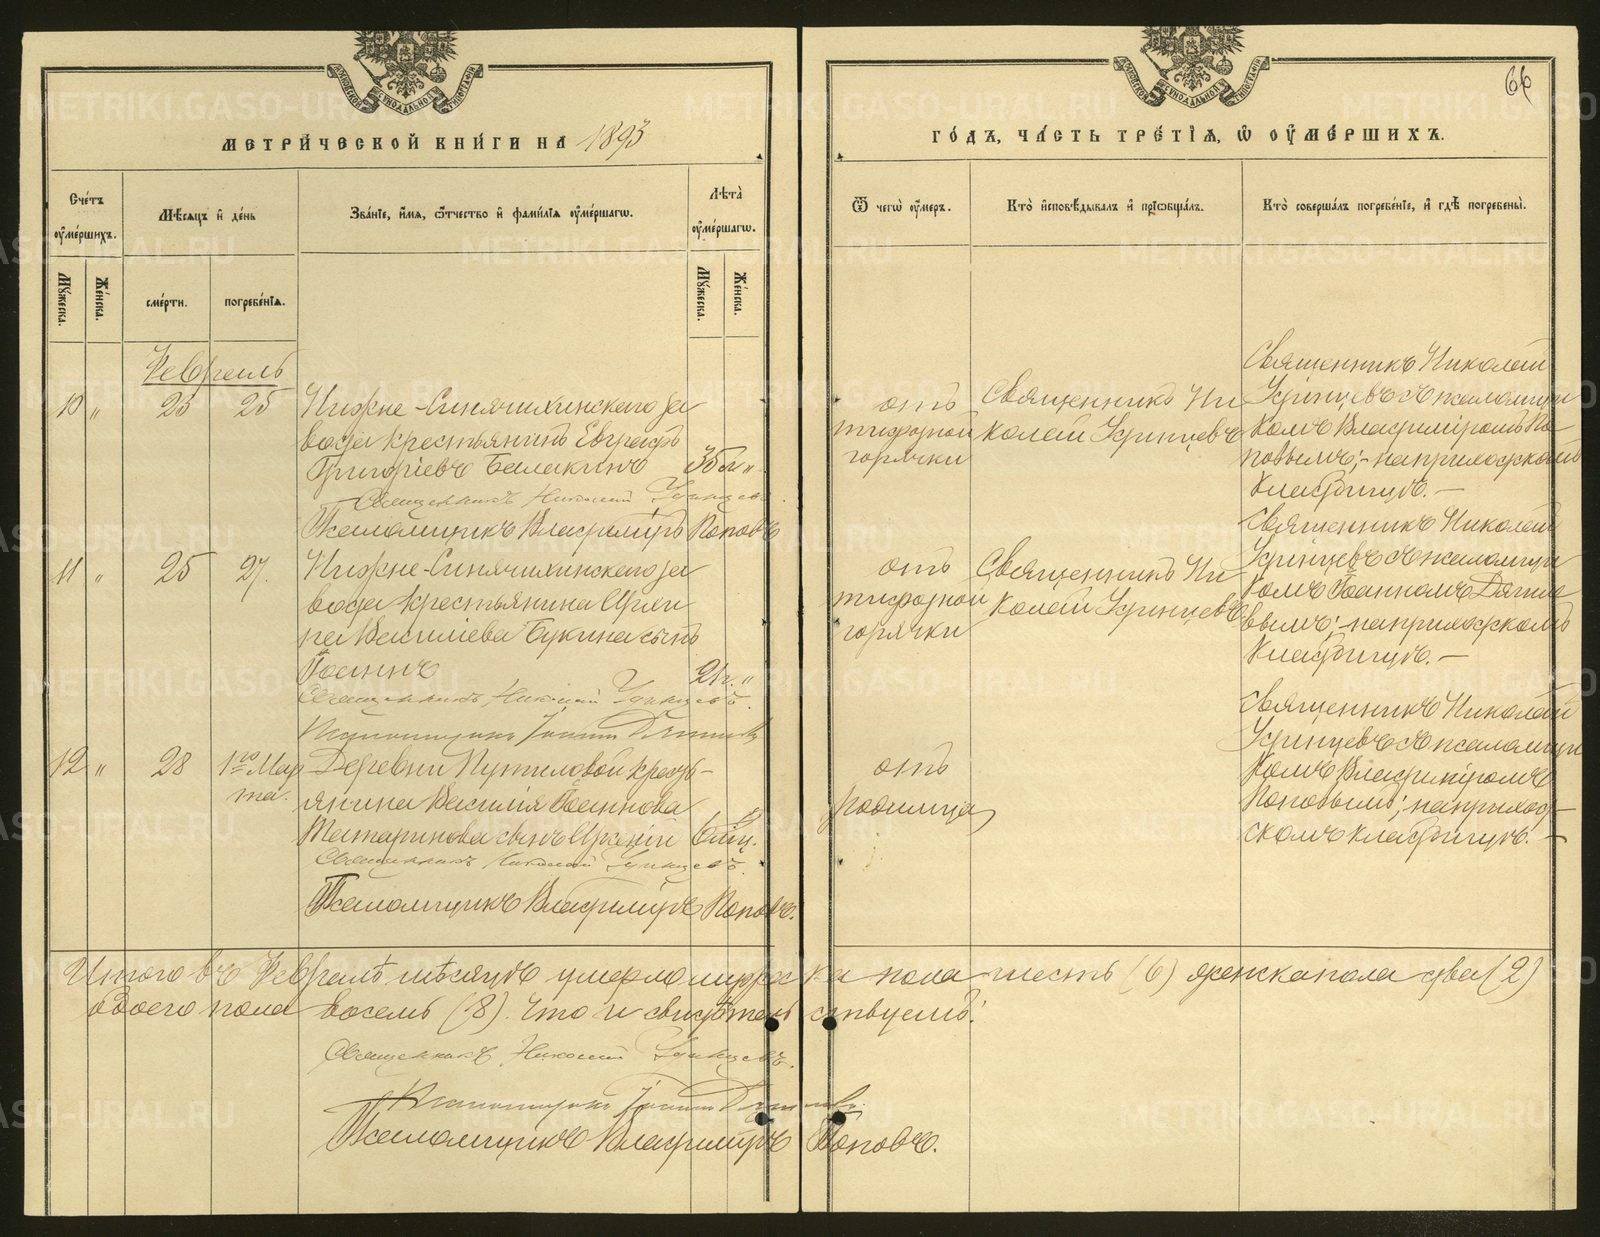 МЕТРИ́ЧЕСКОЙ КНИ́ГИ НА 1893
ГО́ДЪ, ЧА́СТЬ ТРЕ́ТІѦ, Ѡ҆ ОУ҆МЕ́РШИХЪ.
66
Сче́тъ оу҆ме́ршихъ.
Мѣ́сяцъ и҆ де́нь
Зва́ніе, и҆́мя, ѻ҆́тчество и҆ фами́лія оу҆ме́ршагѡ.
Лѣта̀ оу҆ме́ршагѡ.
Ѿ чегѡ̀ оу҆́меръ.
Кто̀ и҆сповѣ́дывалъ и҆ прїѡбща́лъ.
Кто̀ соверша́лъ погребе́ніе, и҆ гдѣ̀ погребены̀.
Мꙋ́жеска.
Же́нска.
сме́рти.
погребе́нія.
Мꙋ́жеска.
Же́нска.
Февраль
10 " 23 25
Нижне-Синячихинскаго за
вода крестьянинъ Евграфъ
Григоріевъ Балакинъ 35 л "
Священникъ Николай Удинцевъ.
Псаломщикъ Владиміръ Поповъ
отъ
тифозной
горячки
Священникъ Ни
колай Удинцевъ
Священникъ Николай
Удинцевъ съ псаломщи
комъ Владиміромъ По-
повымъ; на приходскомъ
кладбищѣ.—
11 " 25 27.
Нижне-Синячихинскаго за
вода крестьянина
на Василіева Букина сынъ
Іоаннъ 21 г. "
Священникъ Николай Удинцевъ.
Псаломщикъ Іоаннъ
отъ
тифозной
горячки
Священникъ Ни
колай Удинцевъ
Священникъ Николай
Удинцевъ съ псаломщи
комъ Іоанномъ
вымъ; на приходскомъ
кладбищѣ.—
12 " 28 1го Мар
та.
Деревни Путиловой кресть-
янина Василія Іоаннова
Татаринова сынъ 6 мѣс.
Священникъ Николай Удинцевъ.
Псаломщикъ Владиміръ Поповъ.
отъ
родимца
Священникъ Николай
Удинцевъ съ псаломщи
комъ Владиміромъ
Поповымъ; на приход-
скомъ кладбищѣ.—
Итого въ Февралѣ мѣсяцѣ умерло мужеска пола шесть (6) женска пола два (2)
обоего пола восемь (8). Что и свидѣтельствуемъ:
Священникъ Николай Удинцевъ.
Псаломщикъ Іоаннъ
Псаломщикъ Владиміръ Поповъ.
METRIKI.GASO-URAL.RU